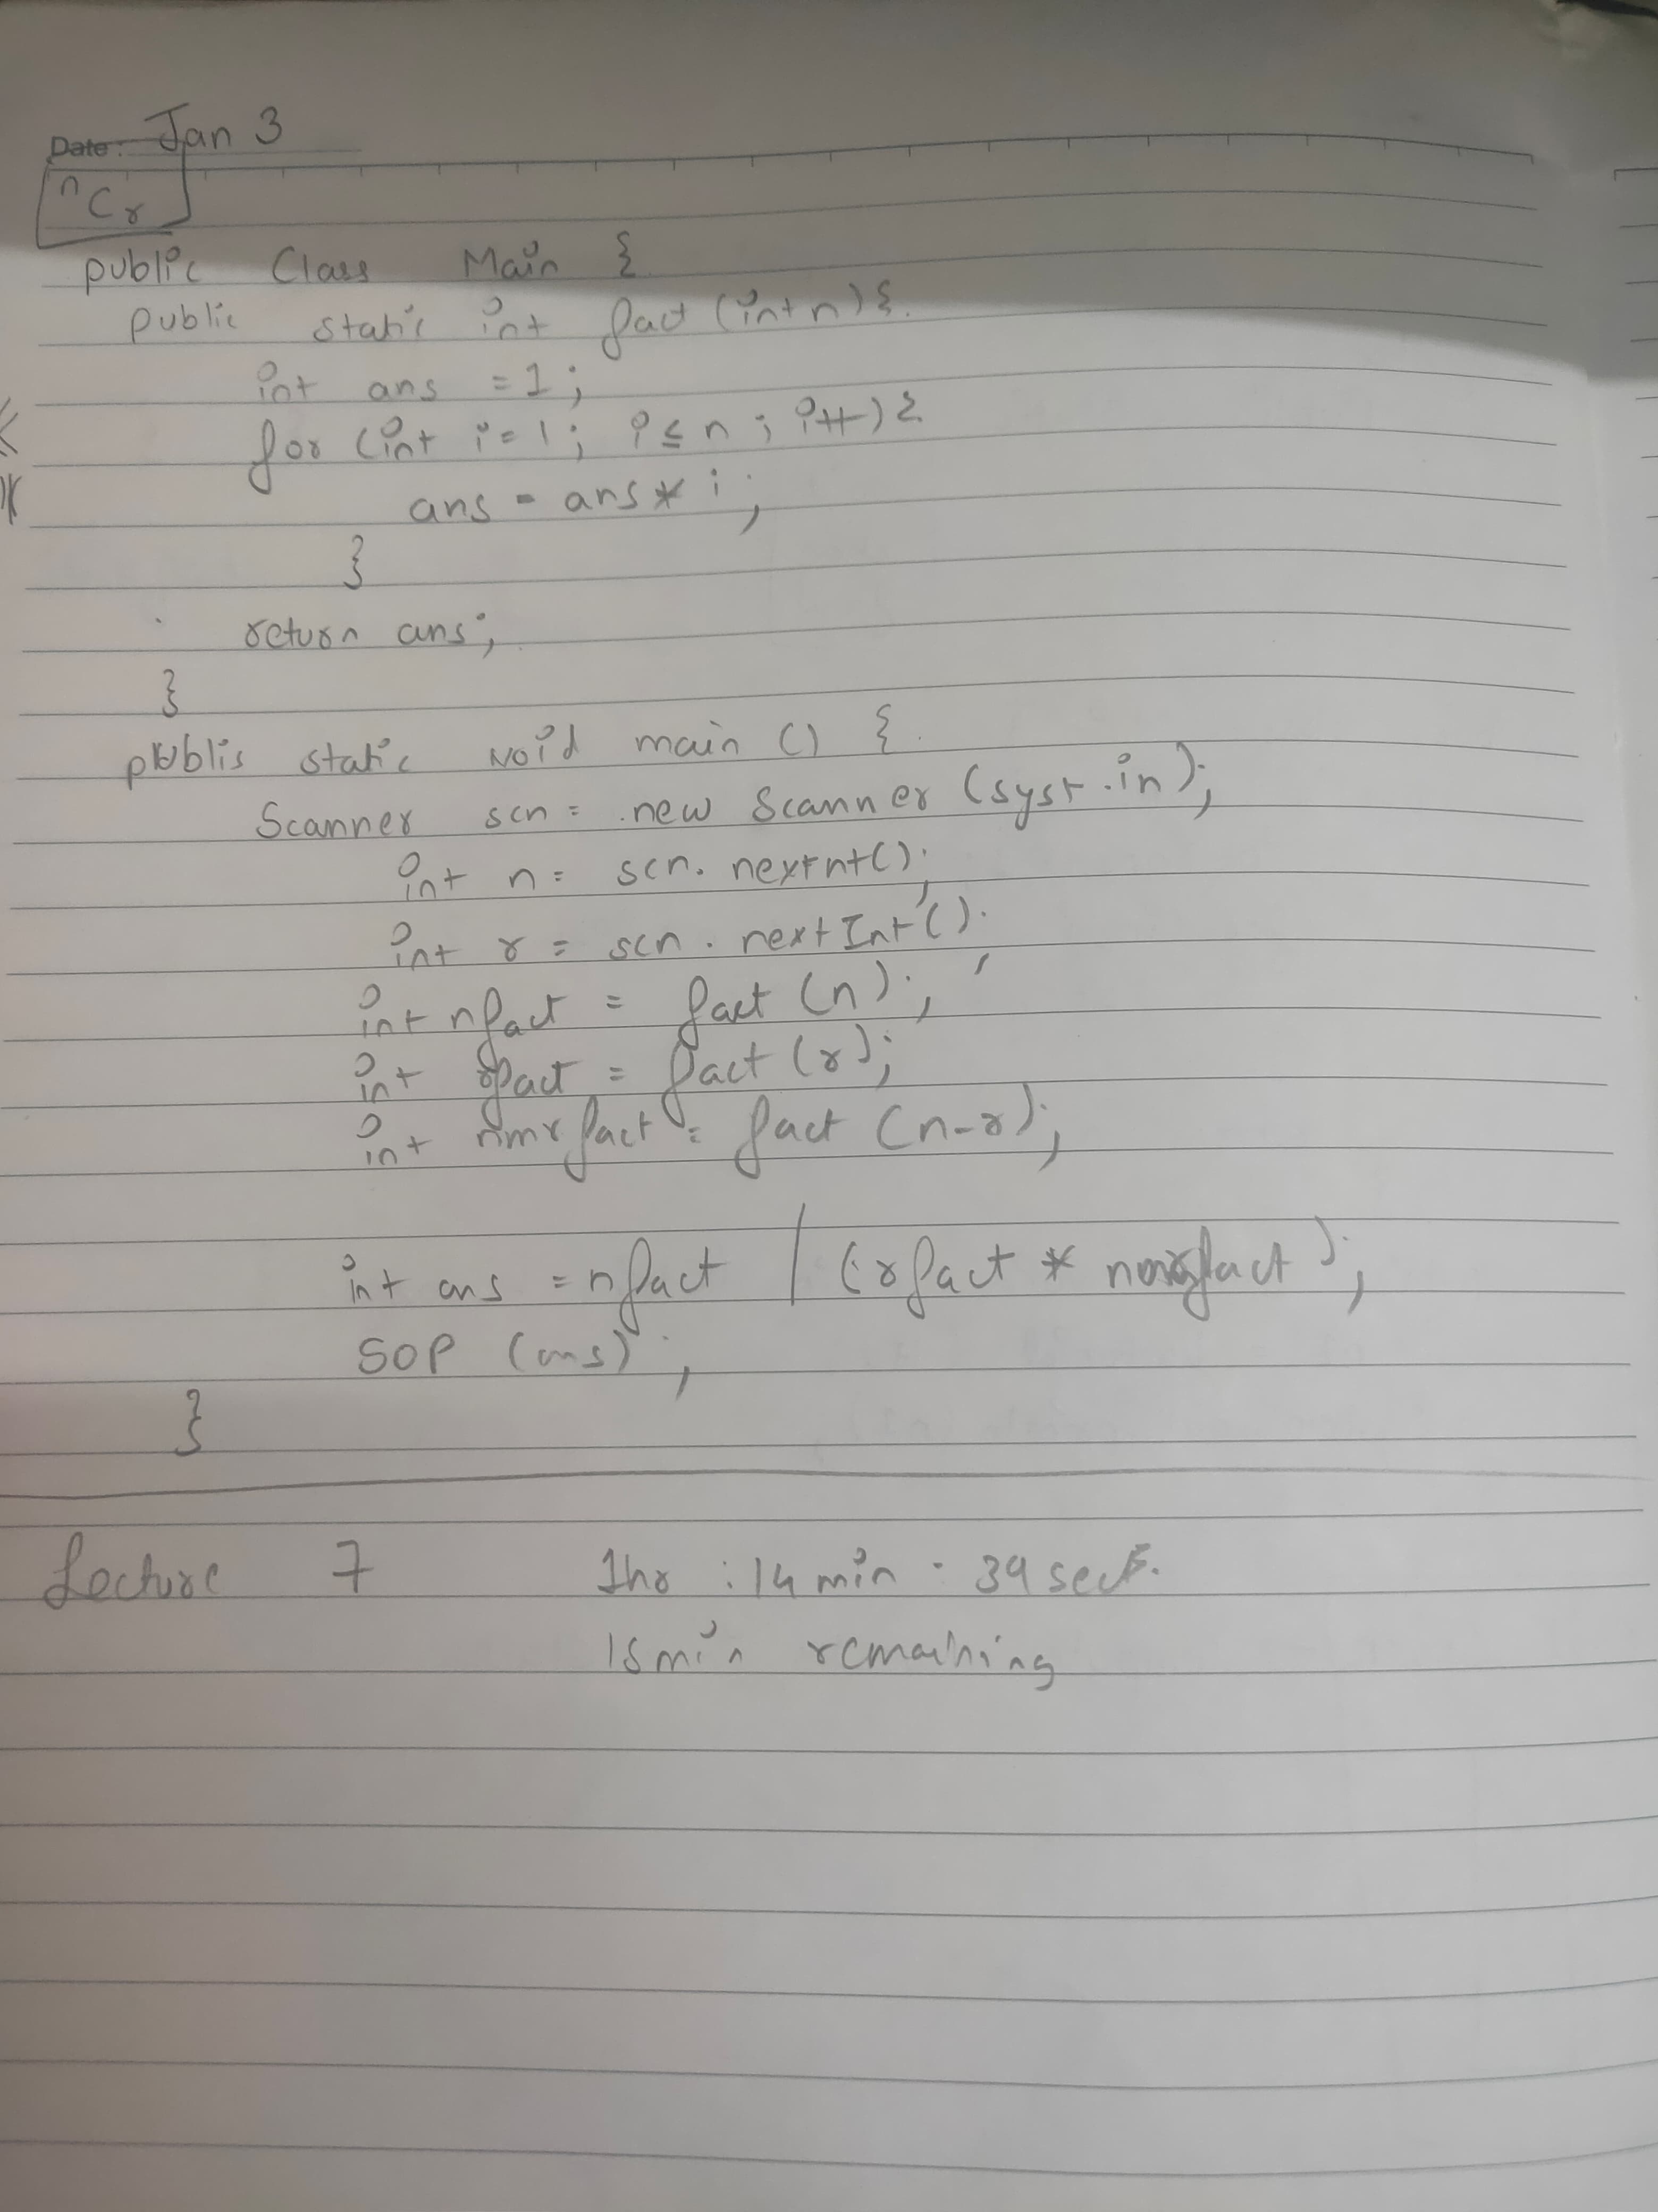 Date: Jan 3
nCr
public Class Main {
public static int fact (int n) {
int ans = 1;
for (int i=1; i≤n; i++) {
ans = ans * i;
}
return ans;
}
publis static void main () {
Scanner scn = new Scanner (syst.in);
int n = scn. nextnt();
int r = scn. nextInt();
int nfact = fact (n);
int rfact = fact (r);
int nmrfact = fact (n-r);
int ans = nfact / (rfact * nmrfact);
SOP (ans);
}
Lecture 7 1hr : 14 min : 39 sec
15min remaining